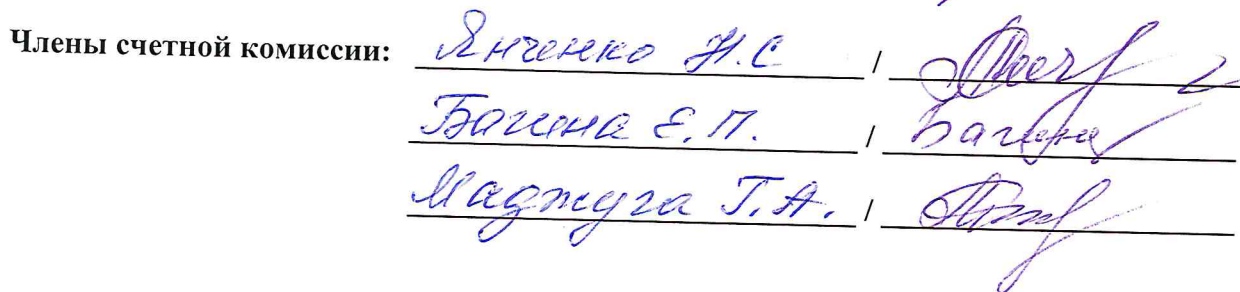 Члены счетной комиссии: Янченко Н.С /
Багина Е.П. / Багина
Маджуга Т.А. /